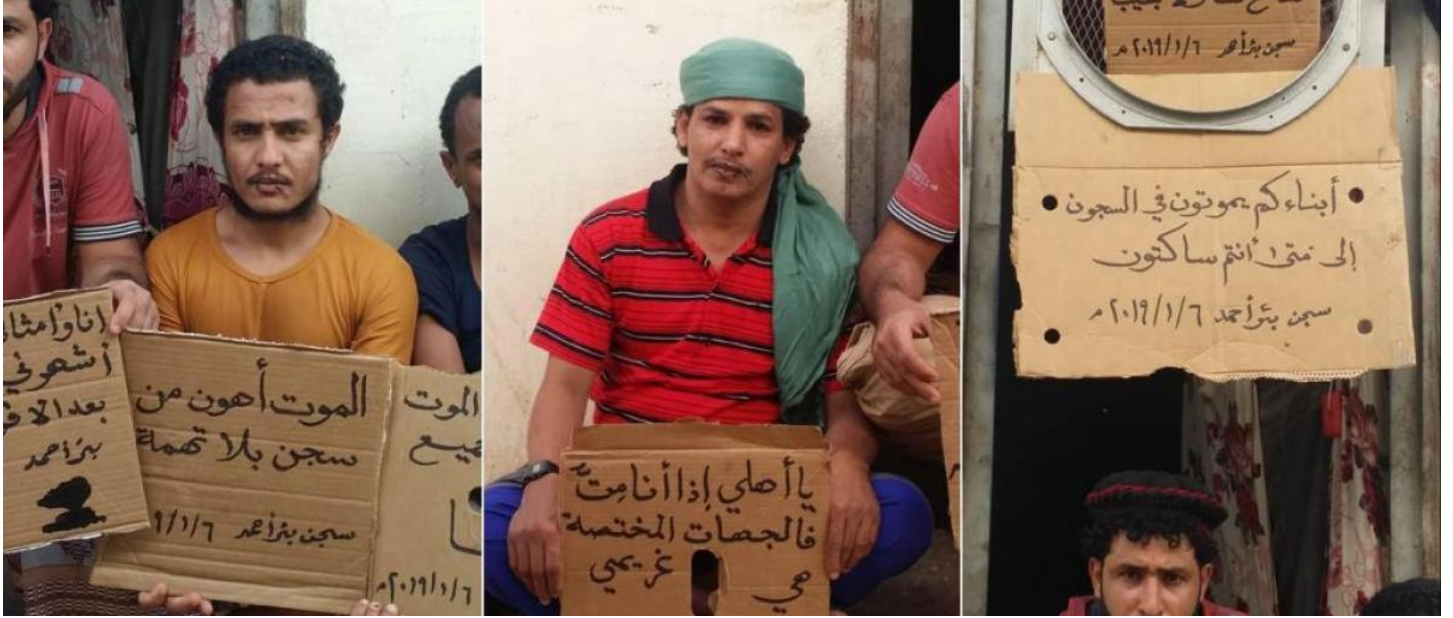 أشهوني
بعد الا
بئر أحمد
الموت أهون من
سجن بلا تهمة
سجن بئر أحمد ٩/١/٦
الموت
٢٠١٩/١/٦م
يا أهلي إذا أنا مِتُّ
فالجهات المختصة
هي غريمي
سجن بئر أحمد ٢٠١٩/١/٦م
أبناءكم يموتون في السجون
إلى متى أنتم ساكتون
سجن بئر أحمد ٢٠١٩/١/٦م